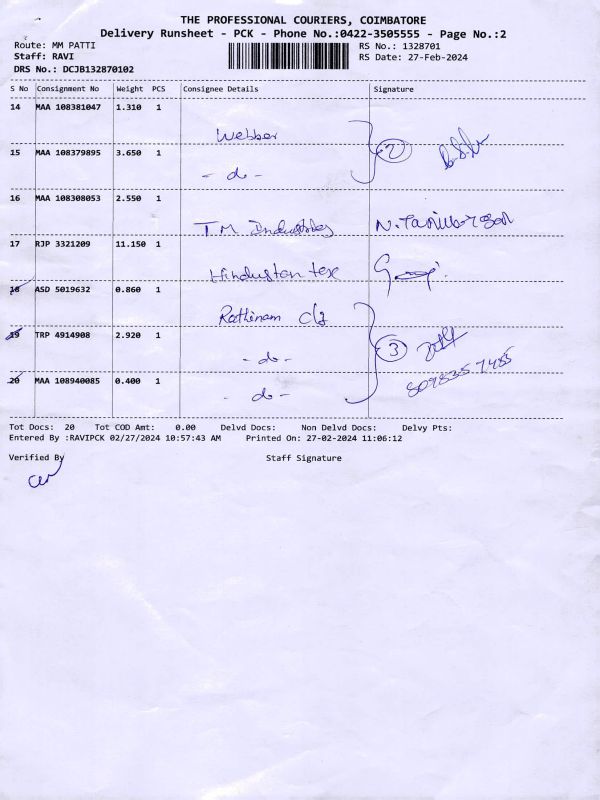 THE PROFESSIONAL COURIERS, COIMBATORE
Delivery Runsheet - PCK - Phone No.:0422-3505555 - Page No.:2
Route: MM PATTI RS No.: 1328701
Staff: RAVI RS Date: 27-Feb-2024
DRS No.: DCJB132870102
S No Consignment No Weight PCS Consignee Details Signature
14 MAA 108381047 1.310 1
Webber
2
15 MAA 108379895 3.650 1
- do -
16 MAA 108308053 2.550 1
T.M. Industries
17 RJP 3321209 11.150 1
Hindustan tex
18 ASD 5019632 0.860 1
Rathinam clg
19 TRP 4914908 2.920 1
- do - 3
20 MAA 108940085 0.400 1
- do -
Tot Docs: 20 Tot COD Amt: 0.00 Delvd Docs: Non Delvd Docs: Delvy Pts:
Entered By :RAVIPCK 02/27/2024 10:57:43 AM Printed On: 27-02-2024 11:06:12
Verified By Staff Signature